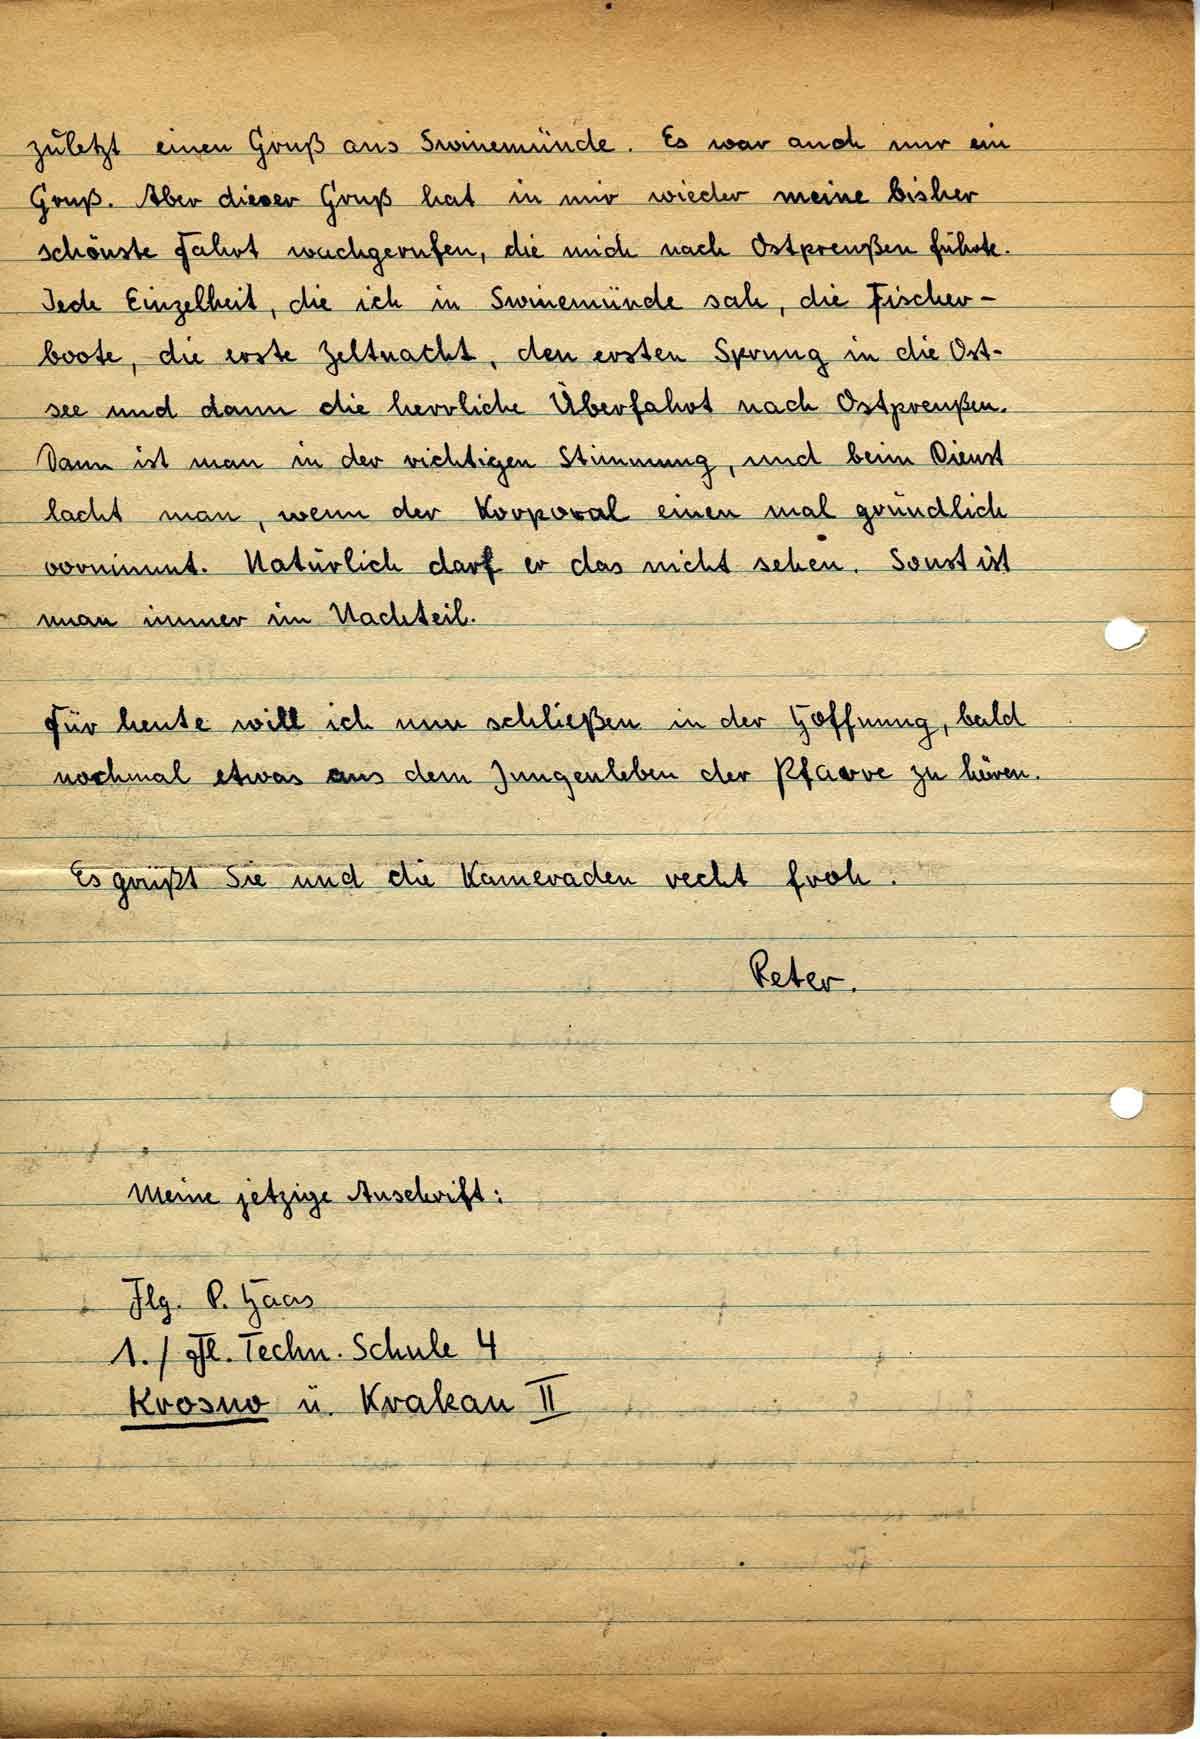 zuletzt einen Gruß aus Swinemünde. Es war auch nur ein
Gruß. Aber dieser Gruß hat in mir wieder meine bisher
schönste Fahrt wachgerufen, die mich nach Ostpreußen führte.
Jede Einzelheit, die ich in Swinemünde sah, die Fischer-
boote, die erste Zeltnacht, den ersten Sprung in die Ost-
see und dann die herrliche Überfahrt nach Ostpreußen.
Dann ist man in der richtigen Stimmung, und beim Dienst
lacht man, wenn der Korporal einen mal gründlich
vornimmt. Natürlich darf er das nicht sehen. Sonst ist
man immer im Nachteil.
Für heute will ich nun schließen in der Hoffnung, bald
nochmal etwas aus dem Jungenleben der Pfarre zu hören.
Es grüßt Sie und die Kameraden recht froh.
Peter.
Meine jetzige Anschrift:
Flg. P. Haas
1./ Fl. Techn. Schule 4
Krosno ü. Krakau II